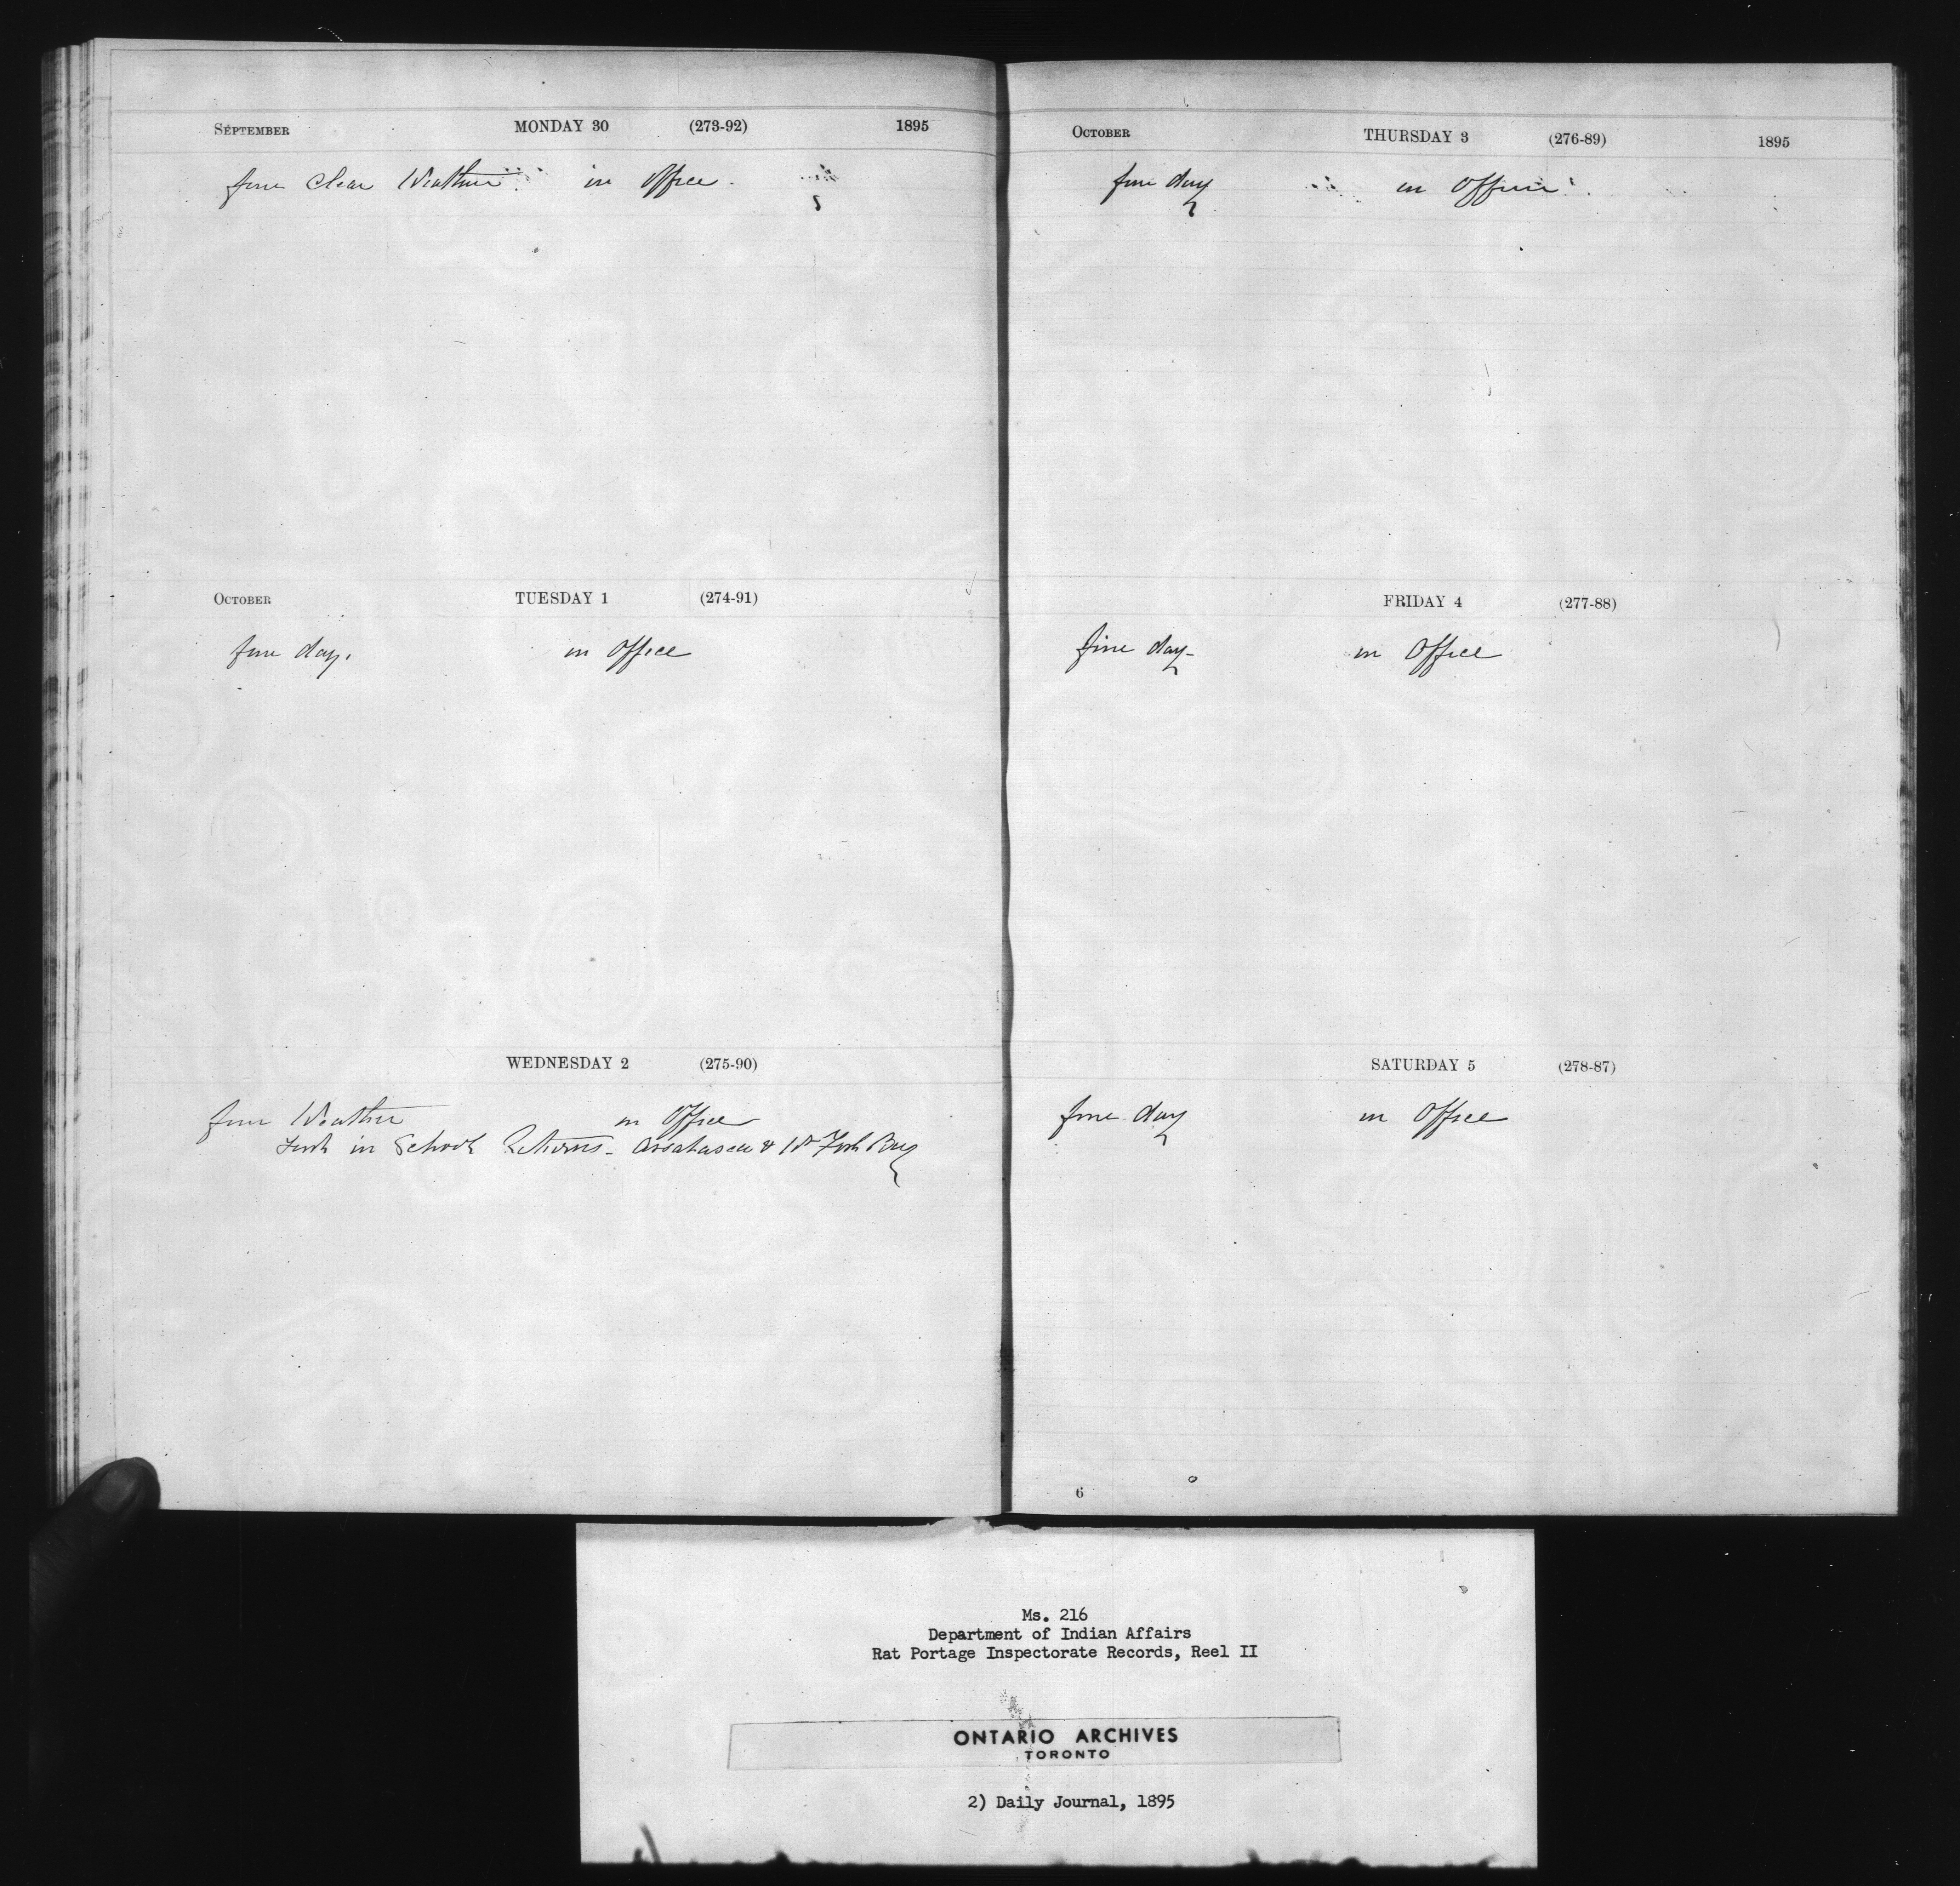 SEPTEMBER MONDAY 30 (273-92) 1895
fine clear Weather. in Office.
OCTOBER TUESDAY 1 (274-91)
fine day. in Office
WEDNESDAY 2 (275-90)
fine Weather in Office
in School Returns - Assabasca & Fish Bay
OCTOBER THURSDAY 3 (276-89) 1895
fine day in Office.
FRIDAY 4 (277-88)
fine day - in Office
SATURDAY 5 (278-87)
fine day in Office
6
Ms. 216
Department of Indian Affairs
Rat Portage Inspectorate Records, Reel II
ONTARIO ARCHIVES
TORONTO
2) Daily Journal, 1895